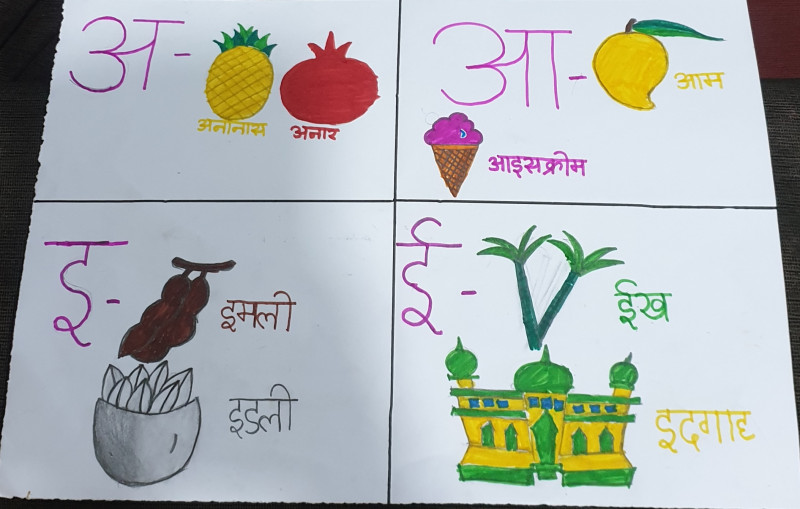 अ-
अनानास अनार
आ-
आम
आइसक्रीम
इ-
इमली
इडली
ई-
ईख
इदगाह